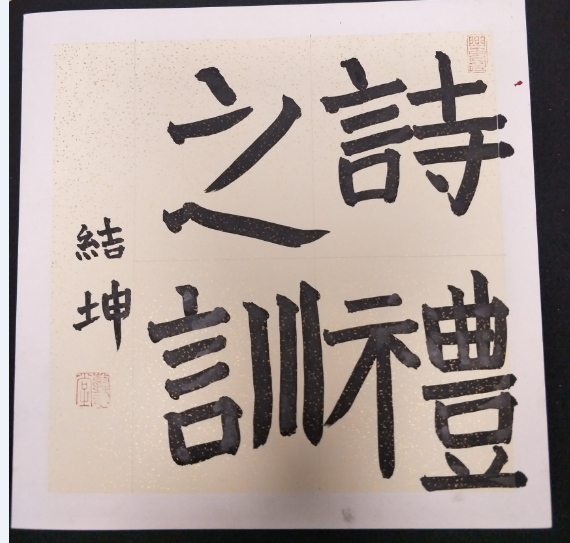 詩禮
之訓
結坤